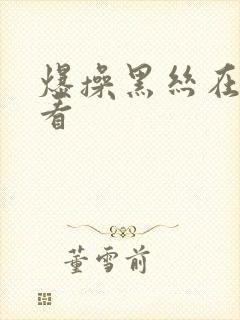 爆操黑丝在
看
董雪前